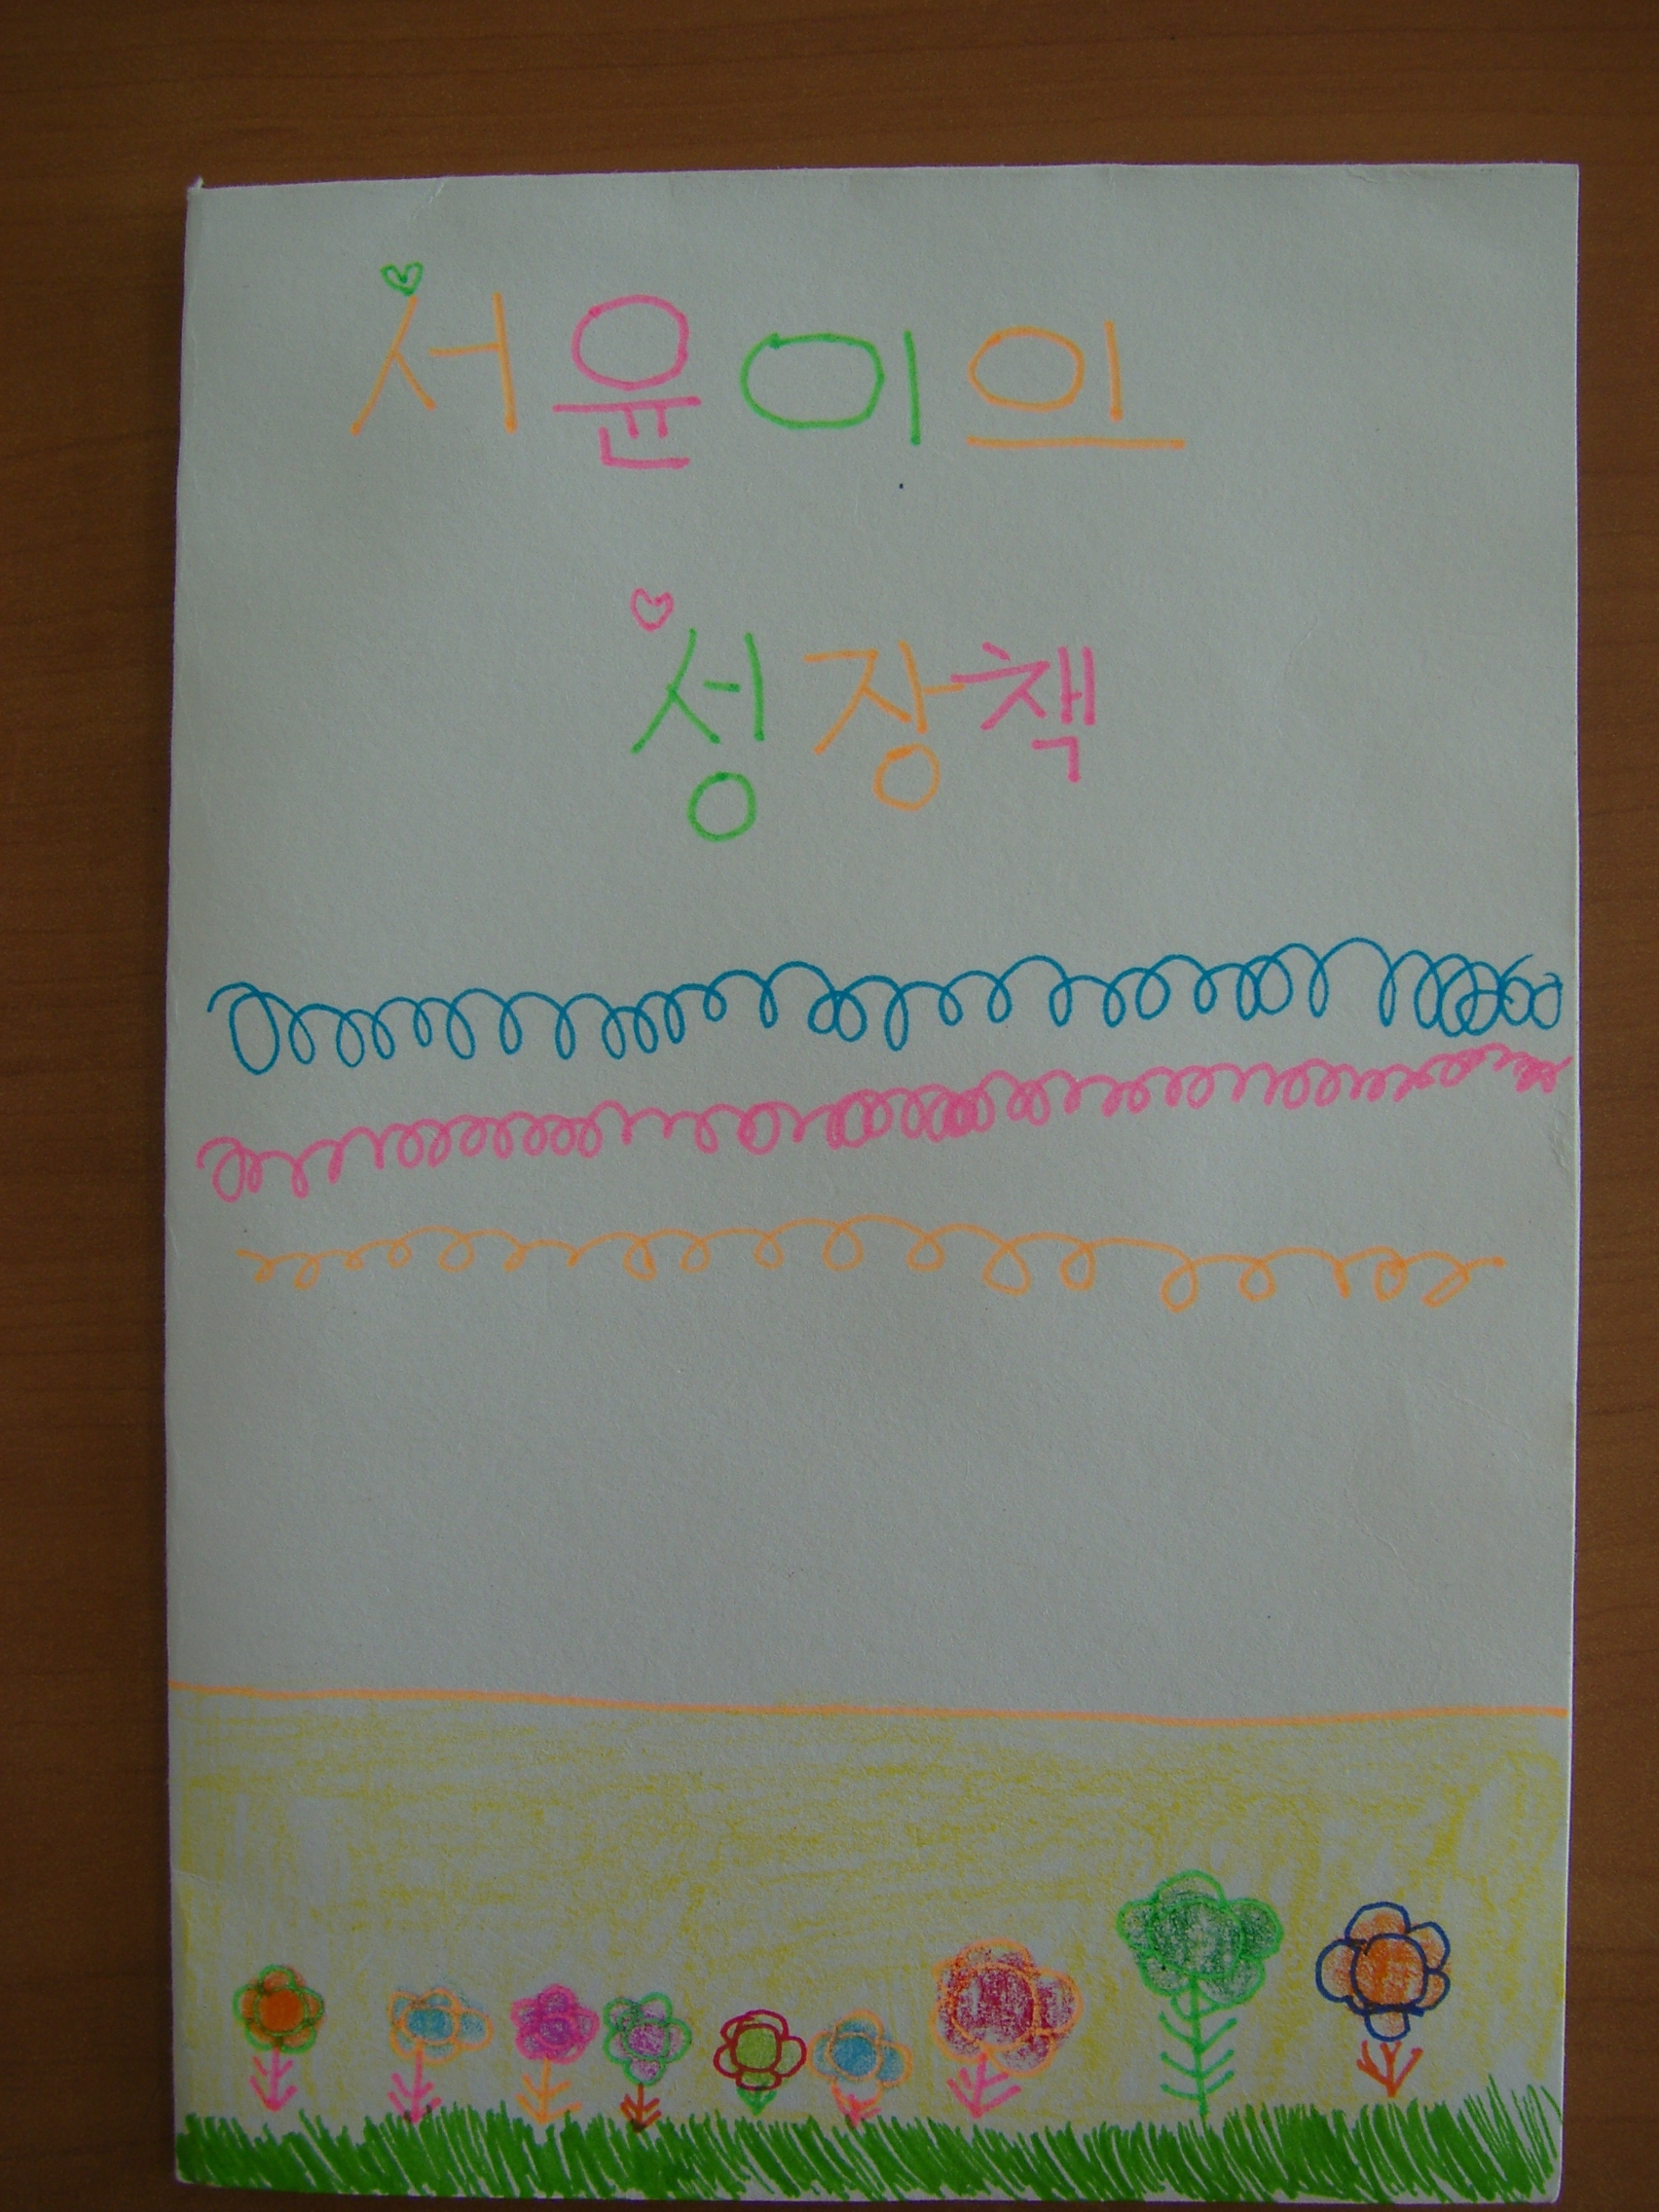 서윤이의
성장책